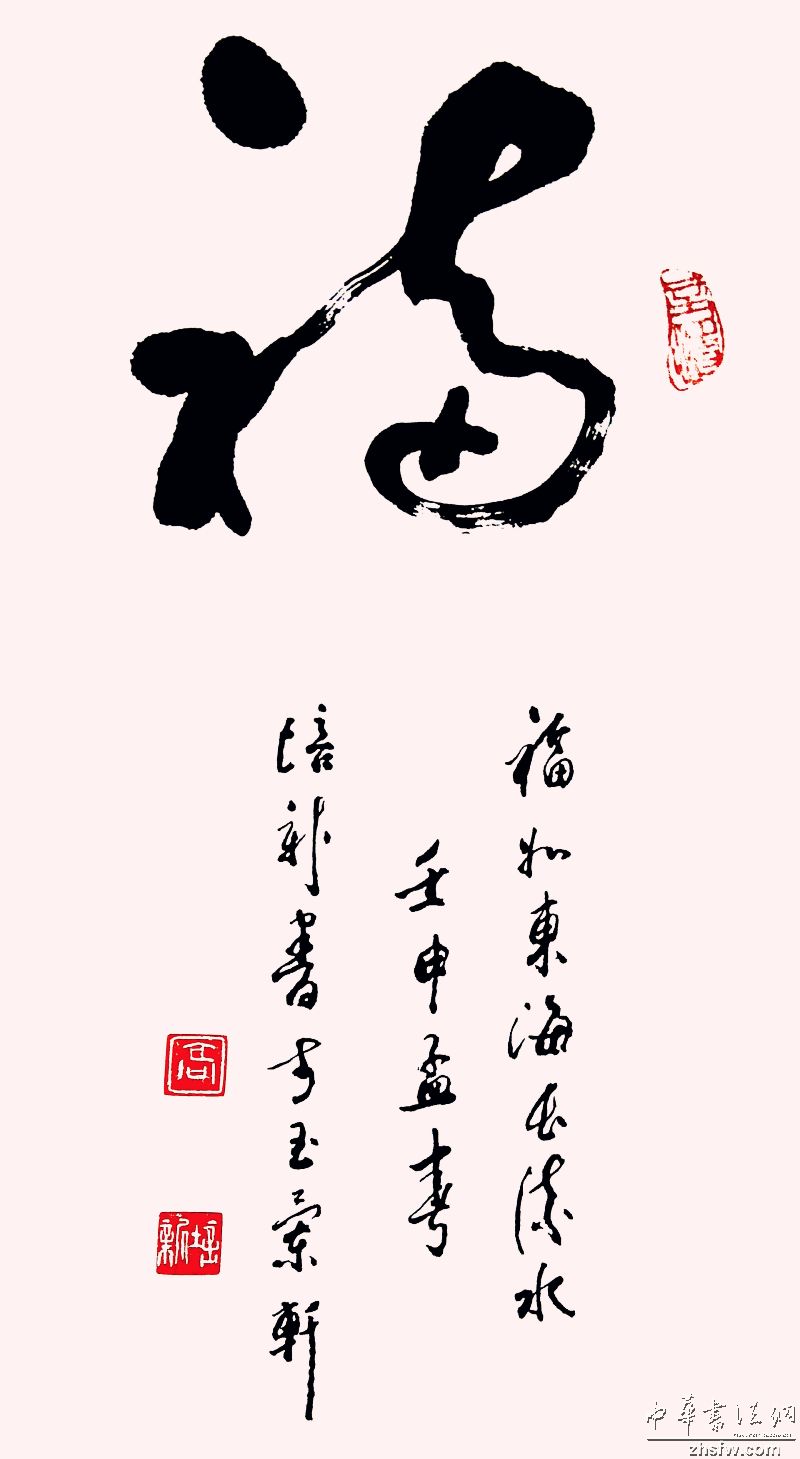 福
福如東海长流水
壬申孟春
培新書于玉蘭軒
培新
中華書法網
zhsfw.com